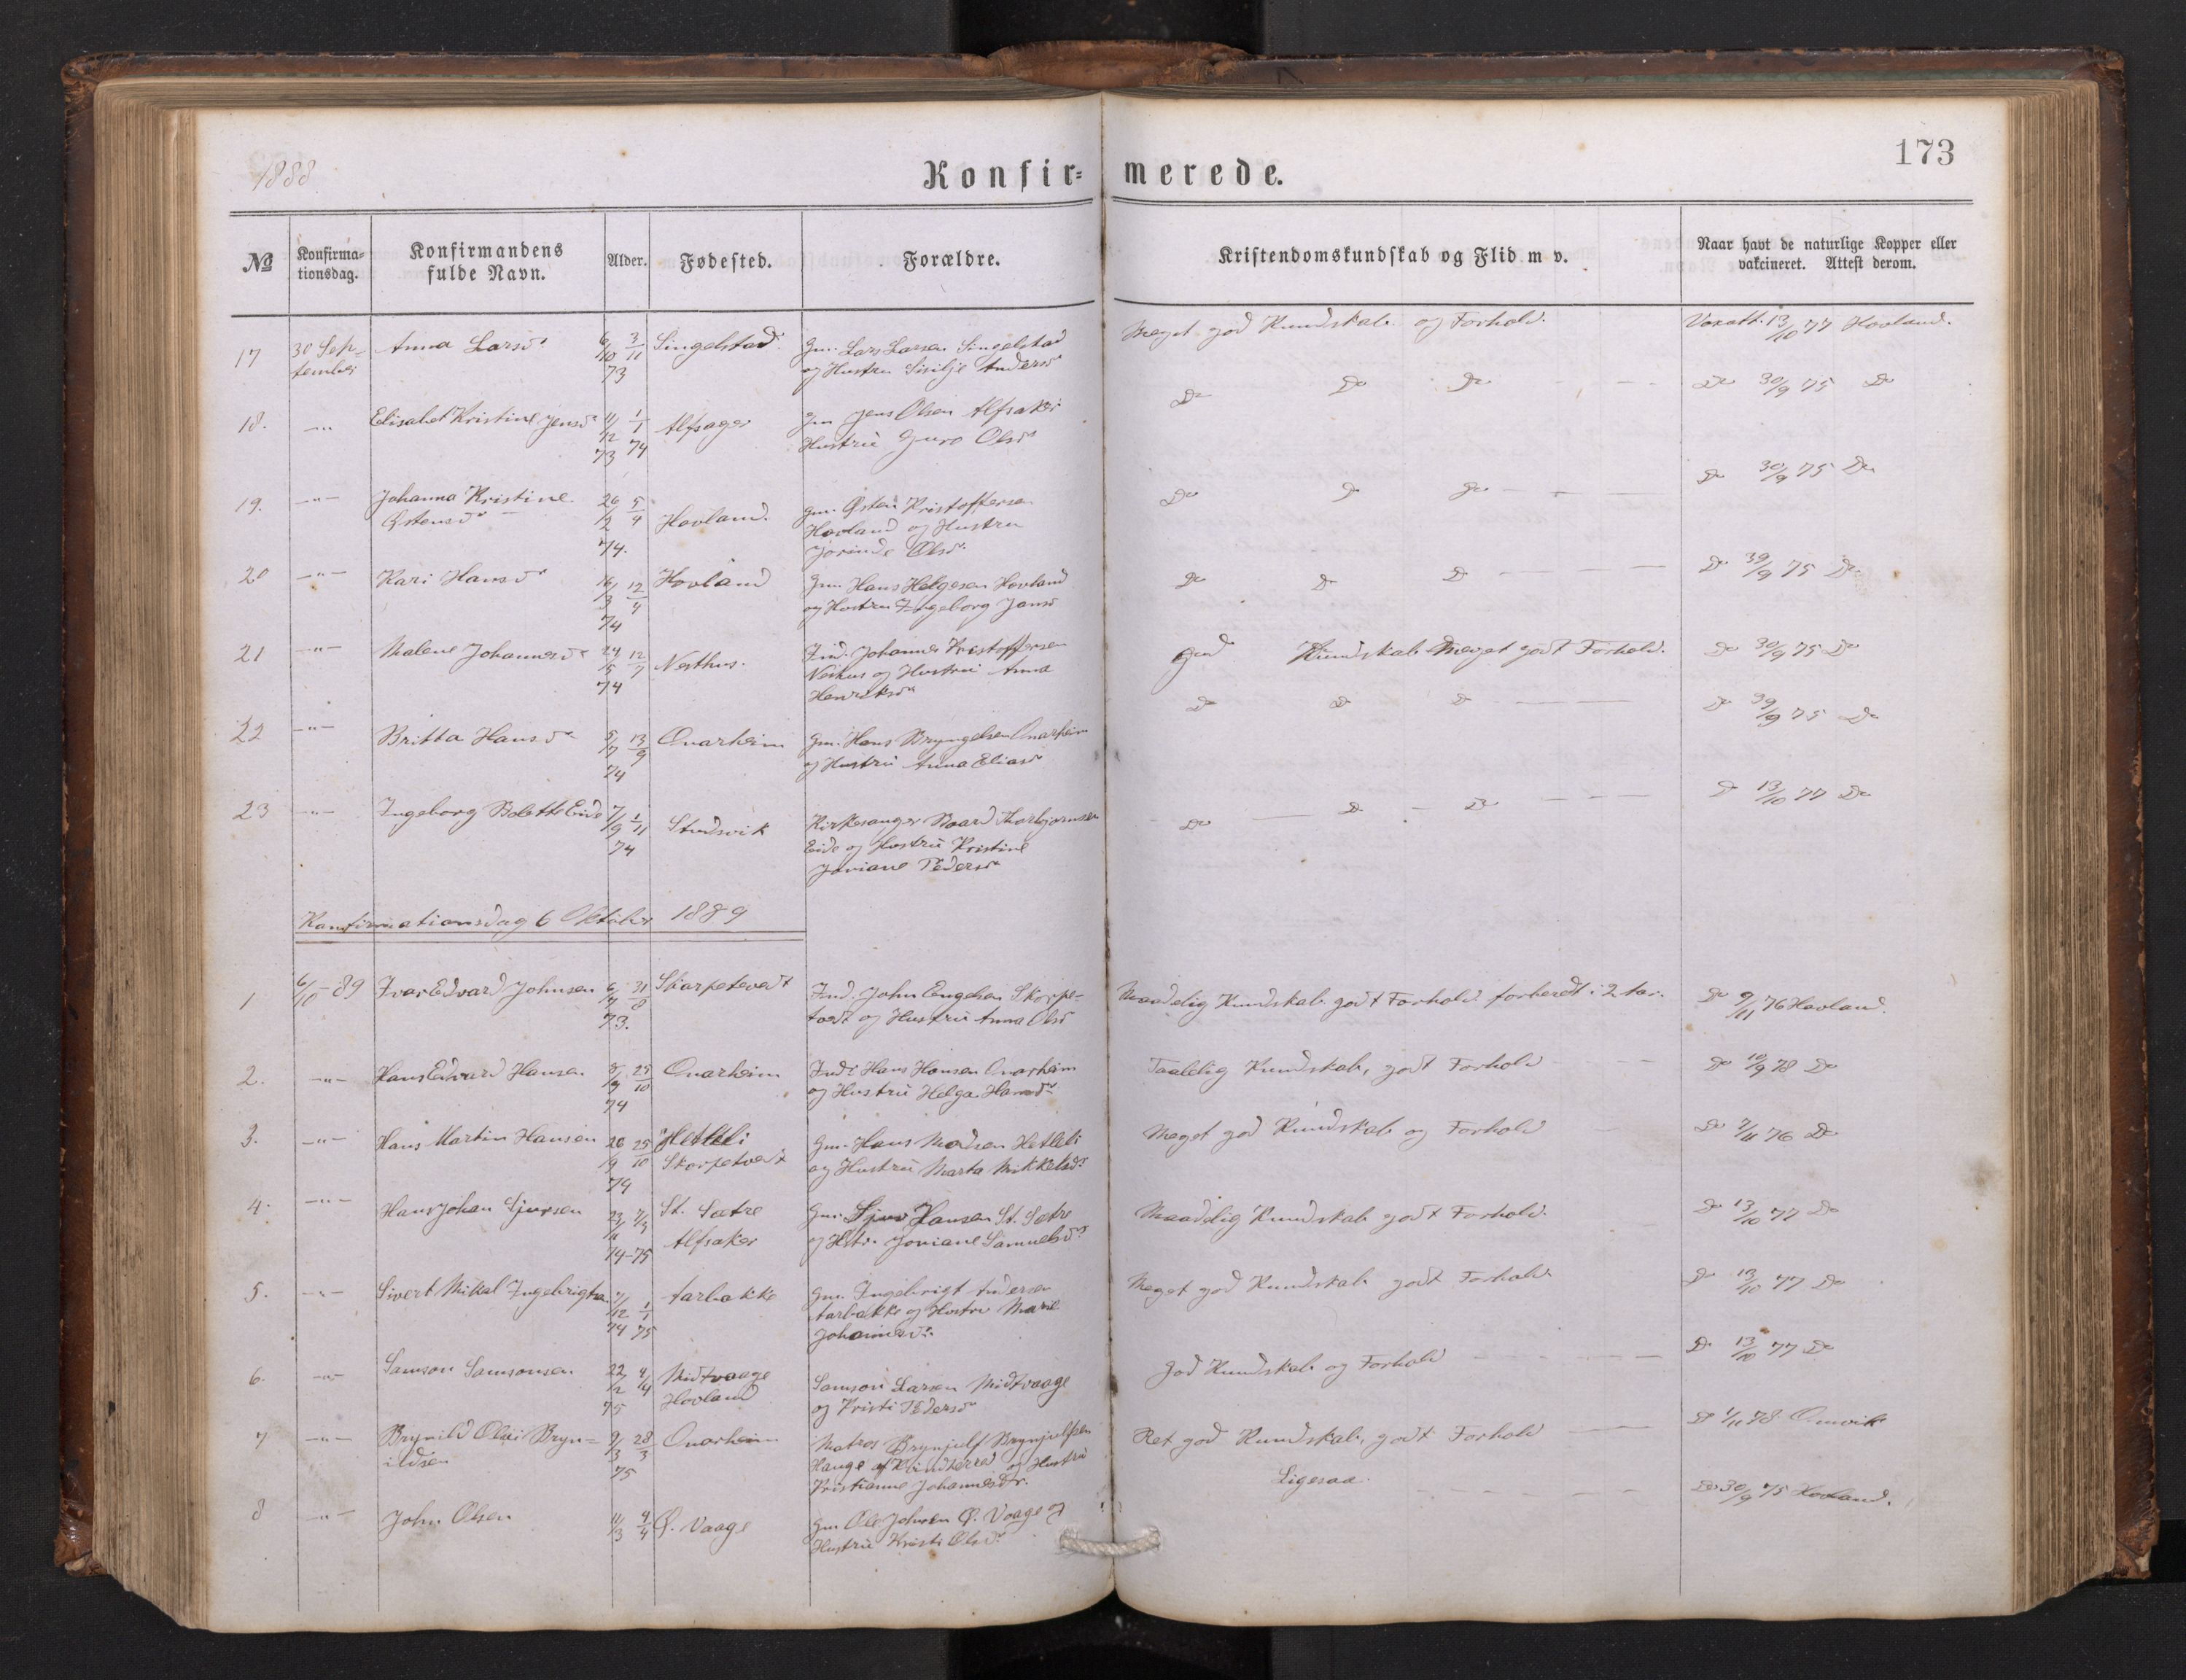 1888
Konfir=merede.
173
№
Konfirma=
tionsdag.
Konfirmandens
fulde Navn.
Alder.
Fødested.
Forældre.
Kristendomskundskab og Flid m v.
Naar havt de naturlige Kopper eller
vakcineret. Attest derom.
17 30 Sep= Anna Larsdr 6/10 3/11 Singelstad Gm. Lars Larsen Singelstad Meget god Kundskab og Forhold. Vaxatt. 13/10 77 Hovland.
tember 73 og Hustru Sisilje Andersdr
18. —"— Elisabet Kristine Jensdr 4/12 1/1 Alfsager Gm Jens Olsen Alfsaker Do Do Do Do 30/9 75 Do
73 74 Hustru Guro Olsdr
19. —"— Johanna Kristine 26/2 5/4 Hovland. Gm. Østen Kristoffersen Do Do Do Do 30/9 75 Do
Østensdr 74. Hovland og Hustru
Jorinde Olsdr.
20 —"— Kari Hansdr 16/3 12/4 Hovland Gm. Hans Helgesen Hovland Do Do Do Do 30/9 75 Do
74 og Hustru Ingeborg Jansd
21 —"— Malene Johannesdr 24/5 12/7 Nesthus. Ind. Johannes Kristoffersen God Kundskab Meget godt Forhold. Do 30/9 75 Do
74 Neshus og Hustru Anna
Henriksdr
22 —"— Britta Hansdr 5/7 13/9 Onarheim Gm. Hans Bryngelsen Onarheim Do Do Do Do 30/9 75 Do
74 og Hustru Anna Eliasd
23 —"— Ingeborg Bolette Eide 7/9 1/11 Stusvik Kirkesanger Baard Thorbjørnsen Do Do Do Do 13/10 77 Do
74 Eide og Hustru Kristine
Joviane Pedersdr
Konfirmationsdag 6 Oktober 1889
1 6/10-89 Ivar Edvard Johnsen 6/7 31/8 Skarpetvedt Ind. John Engelsen Skorpe- Maadelig Kundskab godt Forhold forberedt i 2 Aar. Do 9/11 76 Hovland.
73. tvedt og Hustru Anna Olsd
2. —"— Hans Edvard Hansen 5/9 25/10 Onarheim Ind: Hans Hansen Onarheim Taalelig Kundskab, godt Forhold Do 10/9 78 Do
74 og Hustru Helga Hansdr
3. —"— Hans Martin Hansen 20/9 25/10 Hetleli Gm. Hans Madsen Hetleli Meget god Kundskab og Forhold Do 7/11 76 Do
74 Skorpetvedt og Hustru Marta Mikkelsdr
4. —"— Hans Johan Sjursen 23/11 7/3 St. Sætre Gm. Sjur Hansen St. Sætre Maadelig Kundskab godt Forhold. Do 13/10 77 Do
74-75 Alfsaker og Hstr. Joviane Samuelsdr
5. —"— Sivert Mikal Ingebrigtsen 7/12 1/1 Aarbakke Gm. Ingebrigt Andersen Meget god Kundskab godt Forhold Do 13/10 77 Do
74 75 Aarbakke og Hustru Marie
Johannesdr.
6. —"— Samson Samsonsen 22/2 4/4 Midtvaage Samson Larsen Midtvaage God Kundskab og Forhold Do 13/10 77 Do
75 Hovland og Kristi Pedersdr
7 —"— Brynild Olai Bryn= 9/3 28/3 Onarheim Matros Brynjulf Brynjulfsen Ret god Kundskab, godt Forhold Do 1/11 78 Omvik
ildsen 75 Hauge af Kvindherred og Hustru
Kristianne Johannesdr.
8 —"— John Olsen 11/3 4/4 Ø. Vaage Gm Ole Johnsen Ø. Vaage og Ligesaa. Do 30/9 75 Hovland.
Hustru Kristi Olsdr